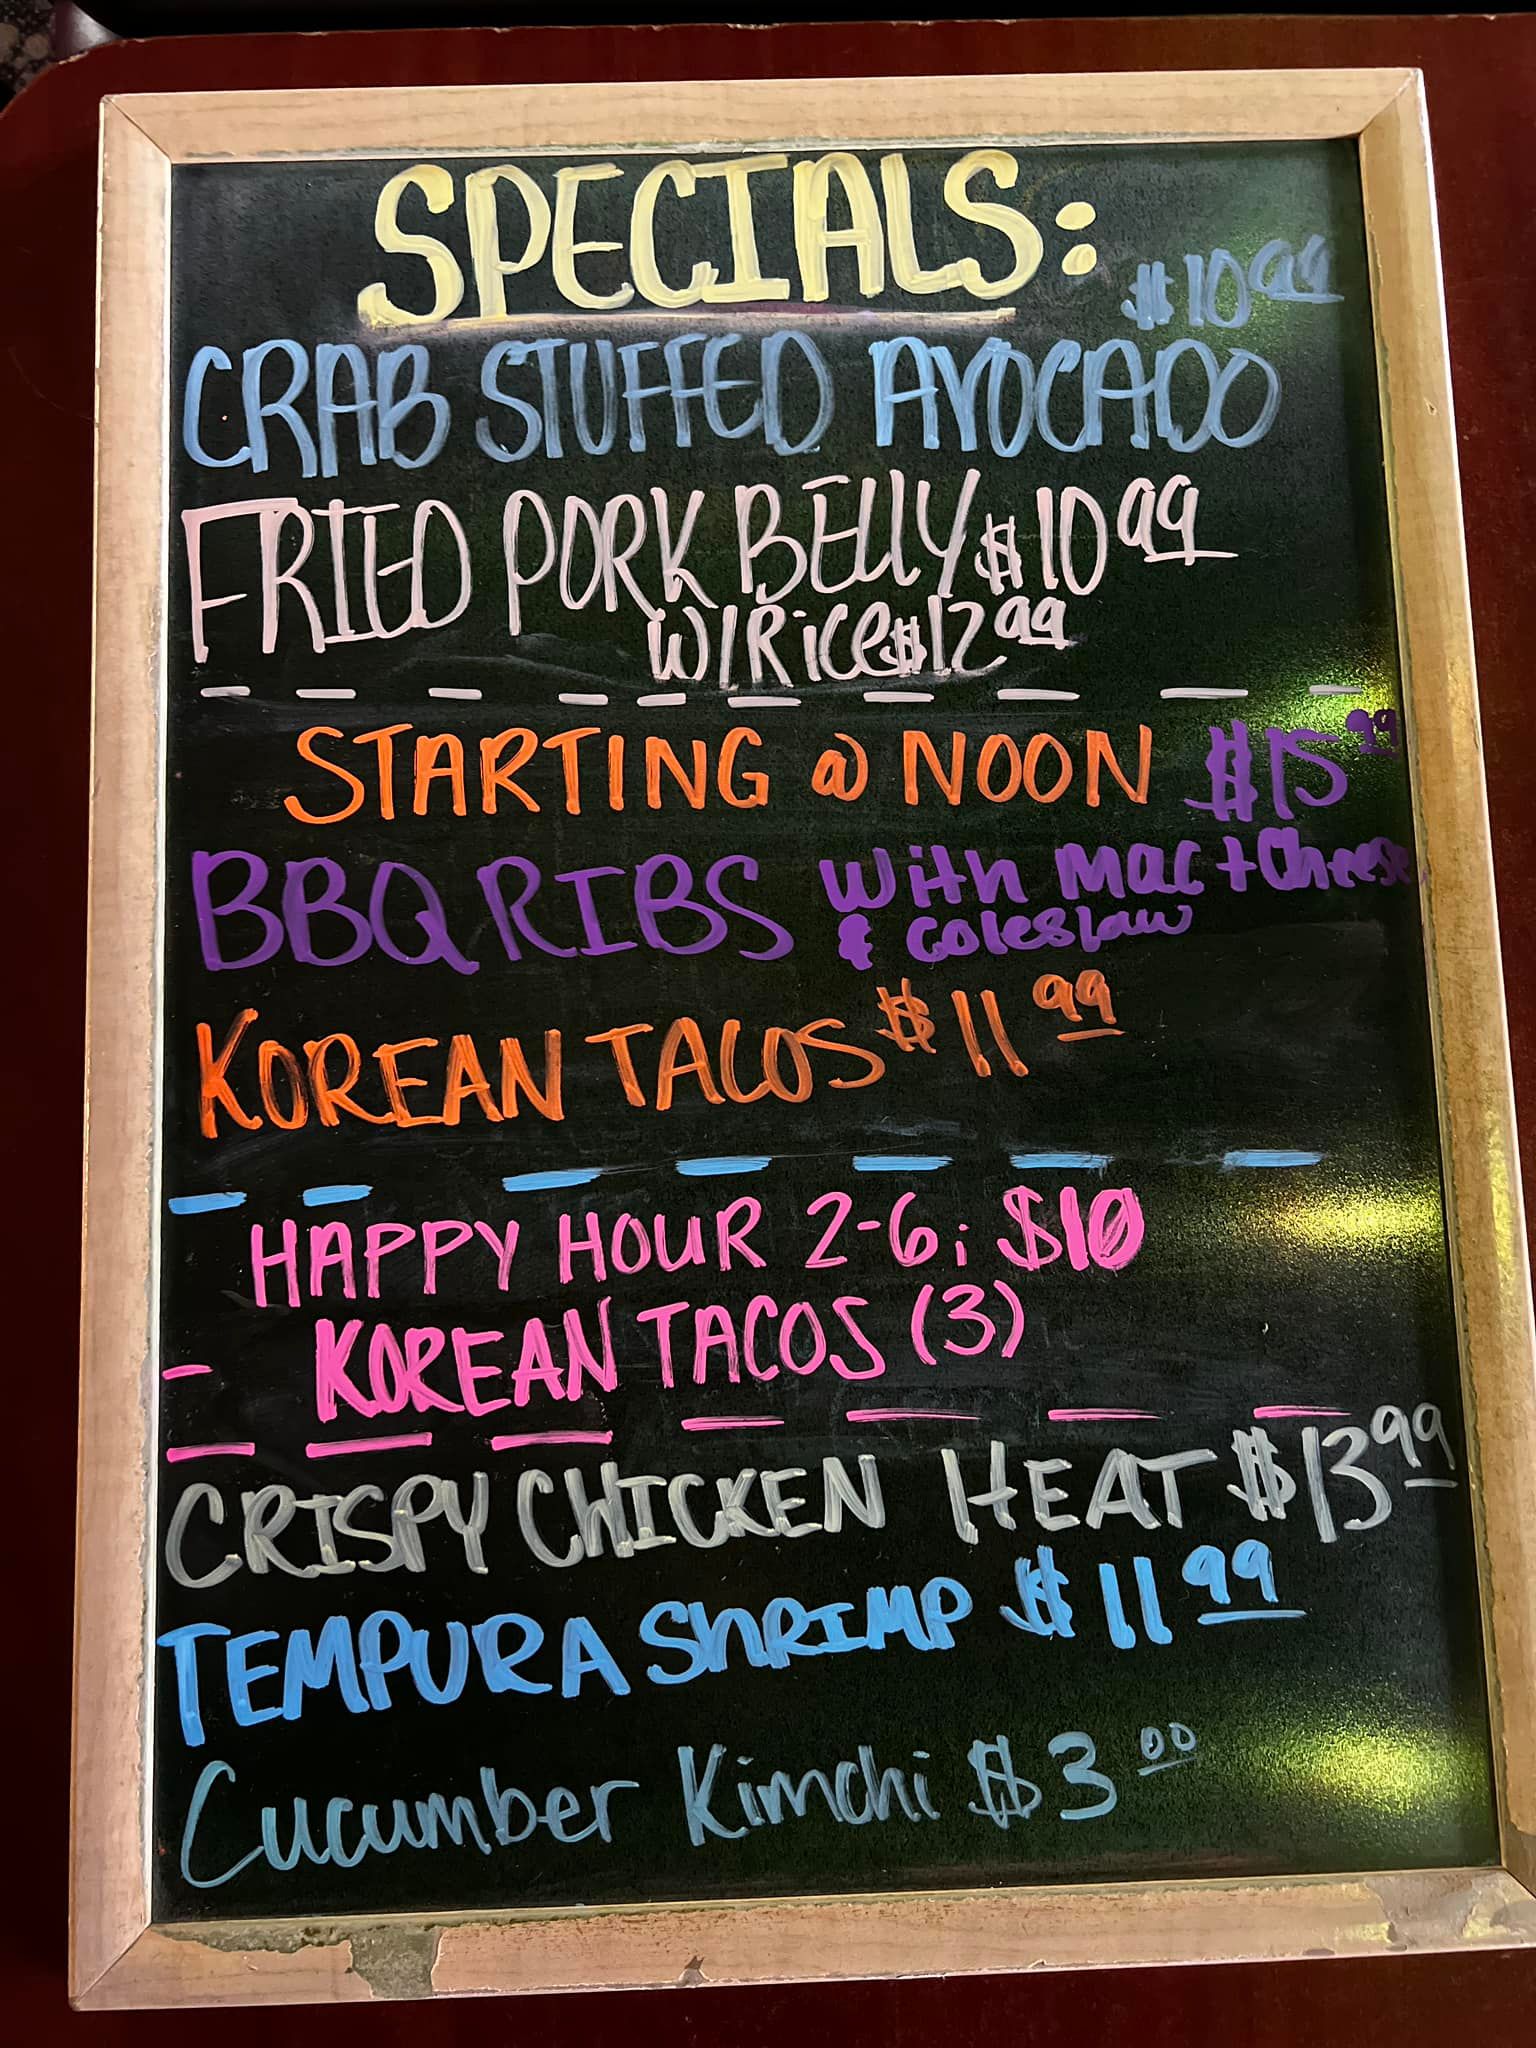 SPECIALS:
$10.99
CRAB STUFFED AVOCADO
FRIED PORK BELLY $10.99
W/Rice $12.99
STARTING @ NOON $15.99
BBQ RIBS with Mac + Cheese
& coleslaw
KOREAN TACOS $11.99
HAPPY HOUR 2-6; $10
KOREAN TACOS (3)
CRISPY CHICKEN HEAT $13.99
TEMPURA ShRIMP $11.99
Cucumber Kimchi $3.00